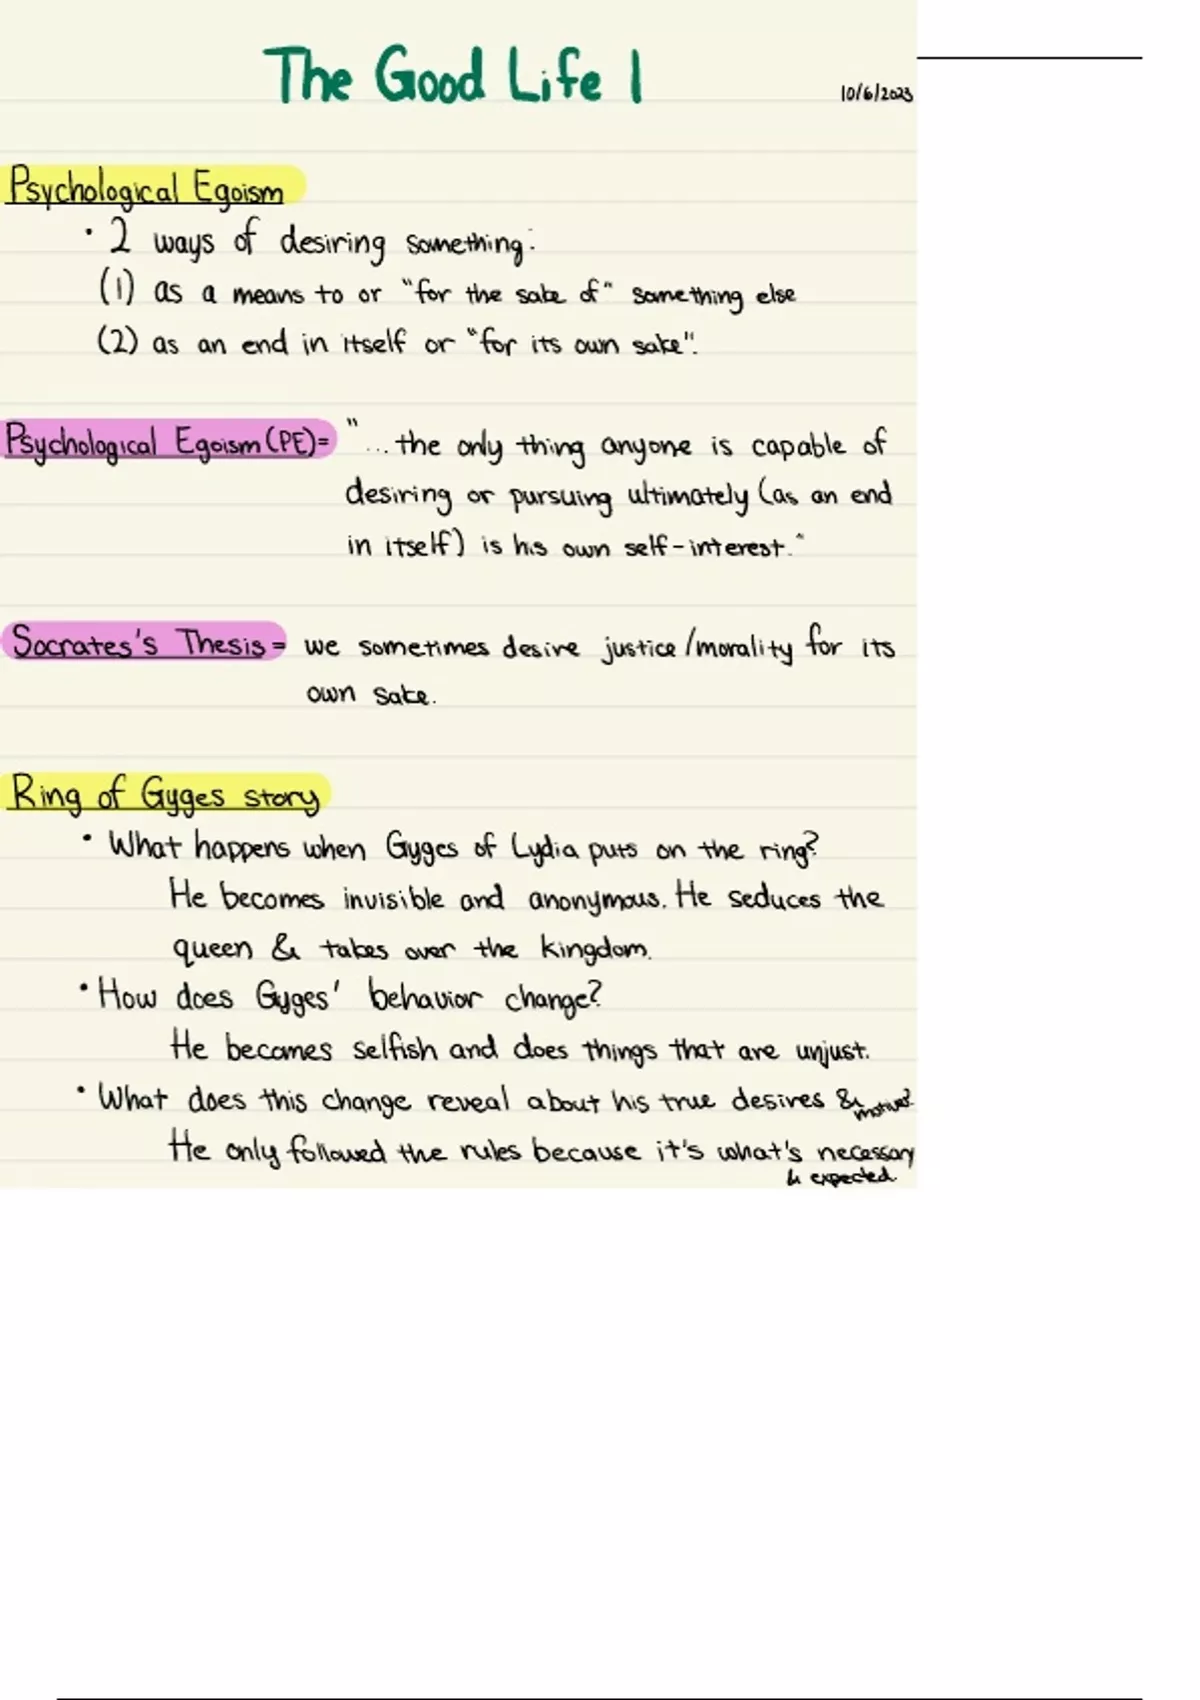 The Good Life 1
10/6/2023
Psychological Egoism
• 2 ways of desiring something:
(1) as a means to or "for the sake of" something else
(2) as an end in itself or "for its own sake".
Psychological Egoism (PE) = "... the only thing anyone is capable of
desiring or pursuing ultimately (as an end
in itself) is his own self-interest."
Socrates's Thesis = we sometimes desire justice/morality for its
own sake.
Ring of Gyges story
• What happens when Gyges of Lydia puts on the ring?
He becomes invisible and anonymous. He seduces the
queen & takes over the kingdom.
• How does Gyges' behavior change?
He becomes selfish and does things that are unjust.
• What does this change reveal about his true desires & motives?
He only followed the rules because it's what's necessary
& expected.